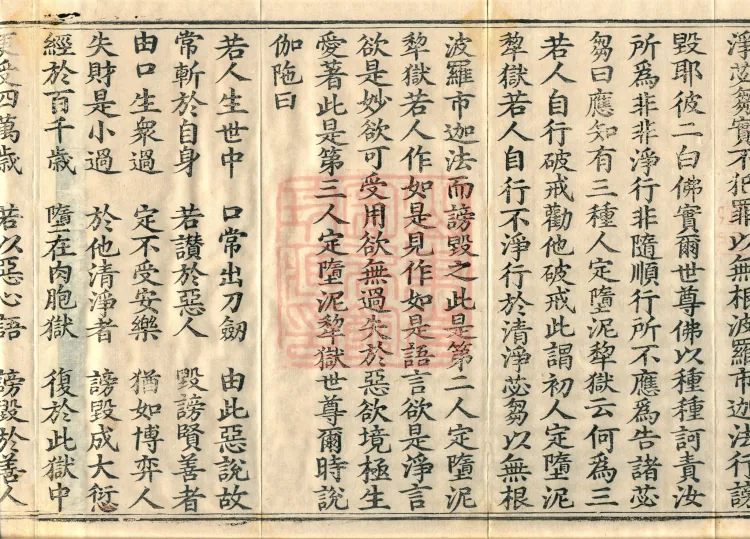 淨苾芻實不犯罪以無根波羅市迦法行謗
毀耶彼二白佛實爾世尊佛以種種訶責汝
所爲非非淨行非隨順行所不應爲告諸苾
芻曰應知有三種人定墮泥犂獄云何爲三
若人自行破戒勸他破戒此謂初人定墮泥
犂獄若人自行不淨行於清淨苾芻以無根
波羅市迦法而謗毀之此是第二人定墮泥
犂獄若人作如是見作如是語言欲是淨言
欲是妙欲可受用欲無過失於惡欲境極生
愛著此是第三人定墮泥犂獄世尊爾時說
伽陁曰
若人生世中　口常出刀劒　由此惡說故
常斬於自身　若讚於惡人　毀謗賢善者
由口生衆過　定不受安樂　猶如博弈人
失財是小過　於他清淨者　謗毀成大愆
經於百千歲　墮在肉胞獄　復於此獄中
更受四萬歲　若以惡心語　謗毀於善人